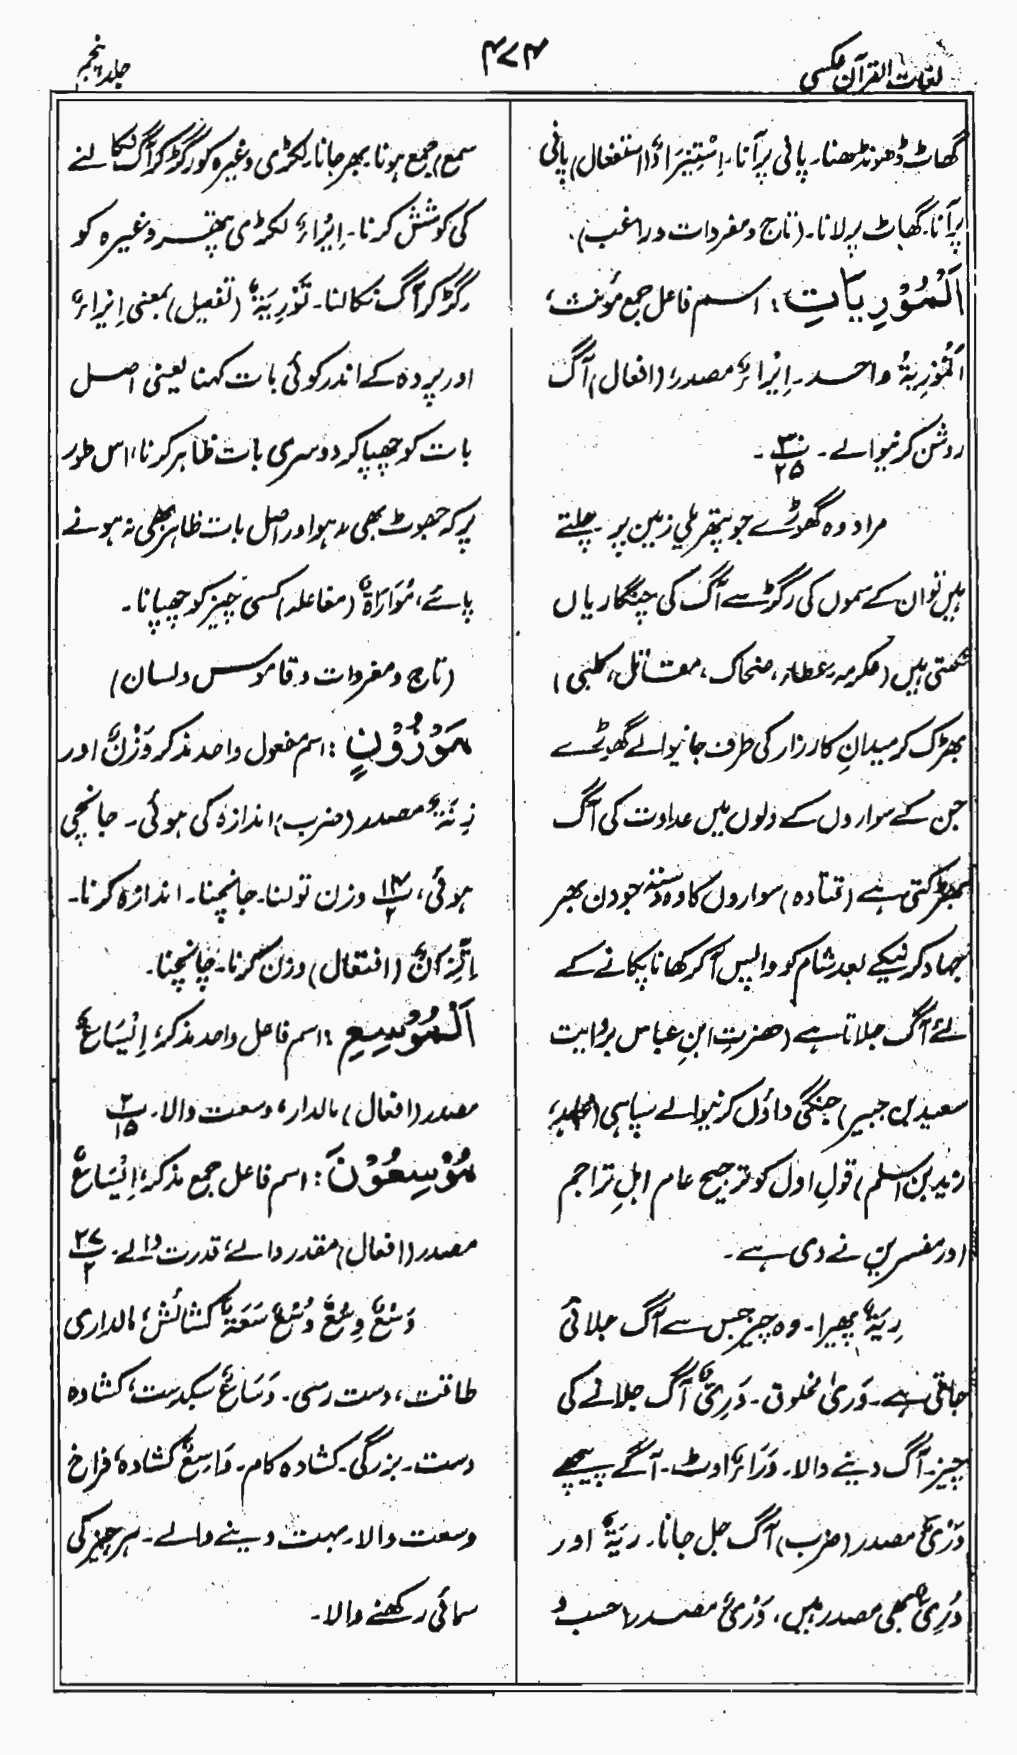 لغات القرآن عکسی
۴۷۴
جلد پنجم
گھاٹ ڈھونڈھنا۔ پانی پر آنا۔ اِسْتِیْرَادٌ (استفعال) پانی
پر آنا۔ گھاٹ پر لانا۔ (تاج و مفردات و راغب)
اَلْمُوْرِیَاتِ: اسم فاعل جمع مؤنث،
اَلْمُوْرِیَۃُ واحد۔ اِیْرَاءٌ مصدر، (افعال) آگ
روشن کرنیوالے۔ پ۳۰/۲۵۔
مراد وہ گھوڑے جو پتھریلی زمین پر چلتے
ہیں تو ان کے سموں کی رگڑ سے آگ کی چنگاریاں
نکلتی ہیں (عکرمہ، عطاء، ضحاک، مقاتل، کلبی)
بھڑک کر میدانِ کارزار کی طرف جانیوالے گھوڑے
جن کے سواروں کے دلوں میں عداوت کی آگ
بھڑکتی ہے (قتادہ) سواروں کا وہ دستہ جو دن بھر
جہاد کرنیکے بعد شام کو واپس آکر کھانا پکانے کے
لئے آگ جلاتا ہے (حضرتِ ابنِ عباس بروایت
سعید بن جبیر) جنگی داؤں کرنیوالے سپاہی (مجاہد،
زید بن اسلم) قولِ اول کو ترجیح عام اہلِ تراجم
اور مفسرین نے دی ہے۔
رِیَۃٌ پھیپڑا۔ وہ چیز جس سے آگ جلائی
جاتی ہے۔ وَرٰی مخلوق۔ وَرِیٌّ آگ جلانے کی
چیز۔ آگ دینے والا۔ وَرَاءٌ اوٹ۔ آگے پیچھے
وَرْیٌ مصدر (ضرب) آگ جل جانا۔ رِیَۃٌ اور
وُرِیٌّ بھی مصدر ہیں، وَرْیٌ مصدر (حسب و
سمع) جمع ہونا بھر جانا۔ لکڑی وغیرہ کو رگڑ کر آگ نکالنے
کی کوشش کرنا۔ اِیْرَاءٌ لکڑی پتھر وغیرہ کو
رگڑ کر آگ نکالنا۔ تَوْرِیَۃٌ (تفعیل) بمعنی اِیْرَاءٌ
اور پردہ کے اندر کوئی بات کہنا یعنی اصل
بات کو چھپا کر دوسری بات ظاہر کرنا، اس طور
پر کہ جھوٹ بھی نہ ہو اور اصل بات ظاہر بھی نہ ہونے
پائے، مُوَارَاۃٌ (مفاعلہ) کسی چیز کو چھپانا۔
(تاج و مفردات و قاموس و لسان)
مَوْزُوْنٍ: اسم مفعول واحد مذکر وَزْنٌ اور
زِنَۃٌ مصدر (ضرب) اندازہ کی ہوئی۔ جانچی
ہوئی، پ۱۴/۲ وزن تولنا۔ جانچنا۔ اندازہ کرنا۔
اِتِّزَانٌ (افتعال) وزن کرنا۔ جانچنا۔
اَلْمُوْسِعِ: اسم فاعل واحد مذکر، اِیْسَاعٌ
مصدر (افعال) مالدار، وسعت والا۔ پ۲/۱۵
مُوْسِعُوْنَ: اسم فاعل جمع مذکر، اِیْسَاعٌ
مصدر (افعال) مقدر والے، قدرت والے۔ پ۲۷/۲
وَسْعٌ وِسْعٌ وُسْعٌ سَعَۃٌ کشائش، مالداری
طاقت، دست رسی۔ وَسَاعٌ سبکدست، کشادہ
دست۔ بزرگی۔ کشادہ کام۔ وَاسِعٌ کشادہ، فراخ
وسعت والا۔ بہت دینے والے۔ ہر چیز کی
سمائی رکھنے والا۔